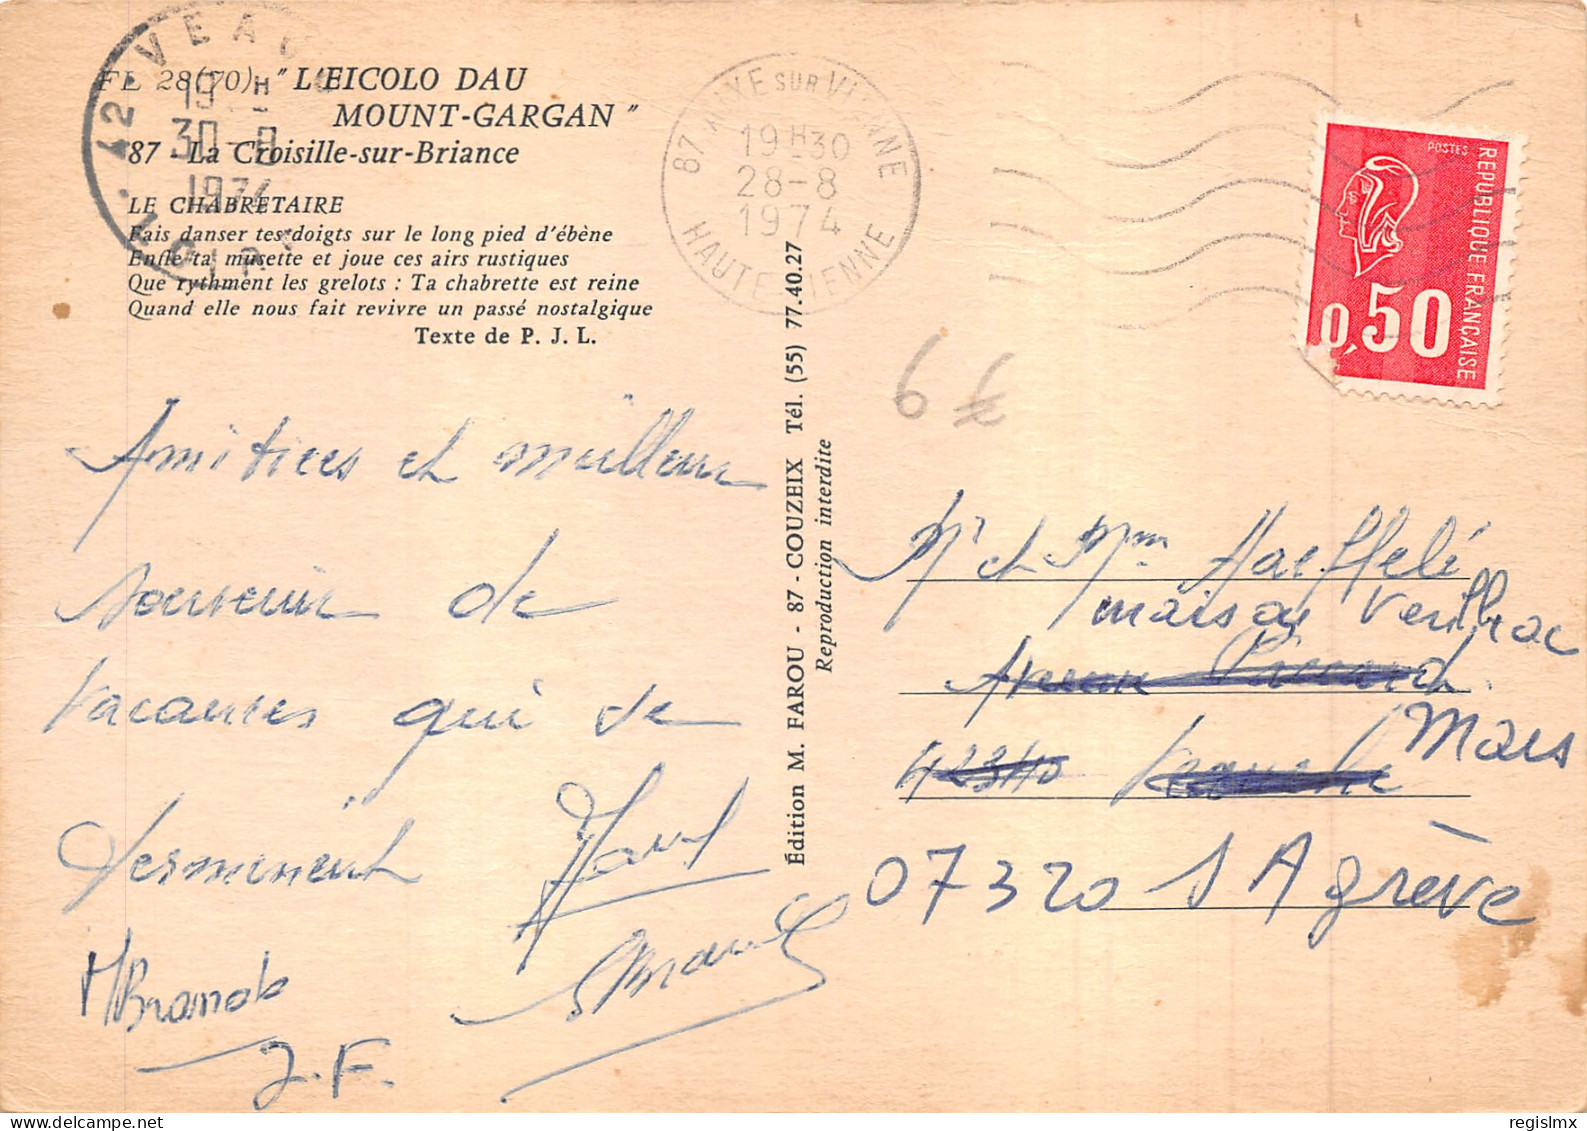 FL 28(70) - "L'EICOLO DAU
MOUNT-GARGAN"
87 - La Croisille-sur-Briance
42 VEAUCHE
19 H
30-8
1974
LOIRE
LE CHABRETAIRE
Fais danser tes doigts sur le long pied d'ébène
Enfle ta musette et joue ces airs rustiques
Que rythment les grelots : Ta chabrette est reine
Quand elle nous fait revivre un passé nostalgique
Texte de P. J. L.
87 AIXE SUR VIENNE
19H30
28-8
1974
HAUTE VIENNE
POSTES
REPUBLIQUE FRANÇAISE
0,50
6 €
Amitiées et meilleur
souvenir de
vacances qui se
terminent
M Brando
J.F.
Édition M. FAROU - 87 - COUZEIX Tél. (55) 77.40.27
Reproduction interdite
Mr et Mme Haeffelé
maison
Avenue
42340 Veauche
Mars
07320 S Agrève
regislmx